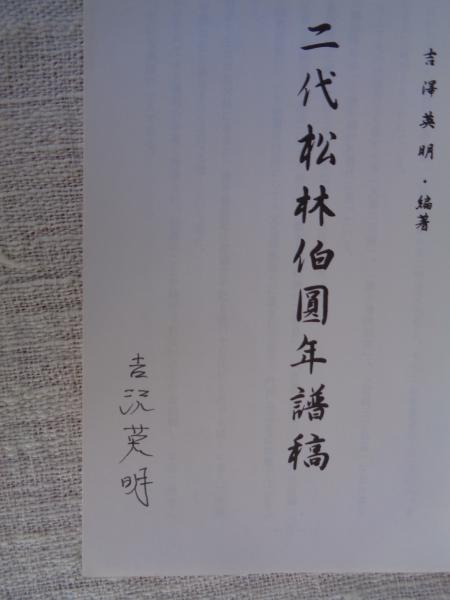 吉澤英明・編著
二代松林伯圓年譜稿
吉沢英明